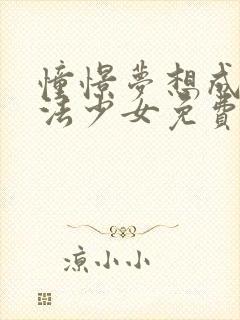 憧憬夢想成
法少女免費
涼小小